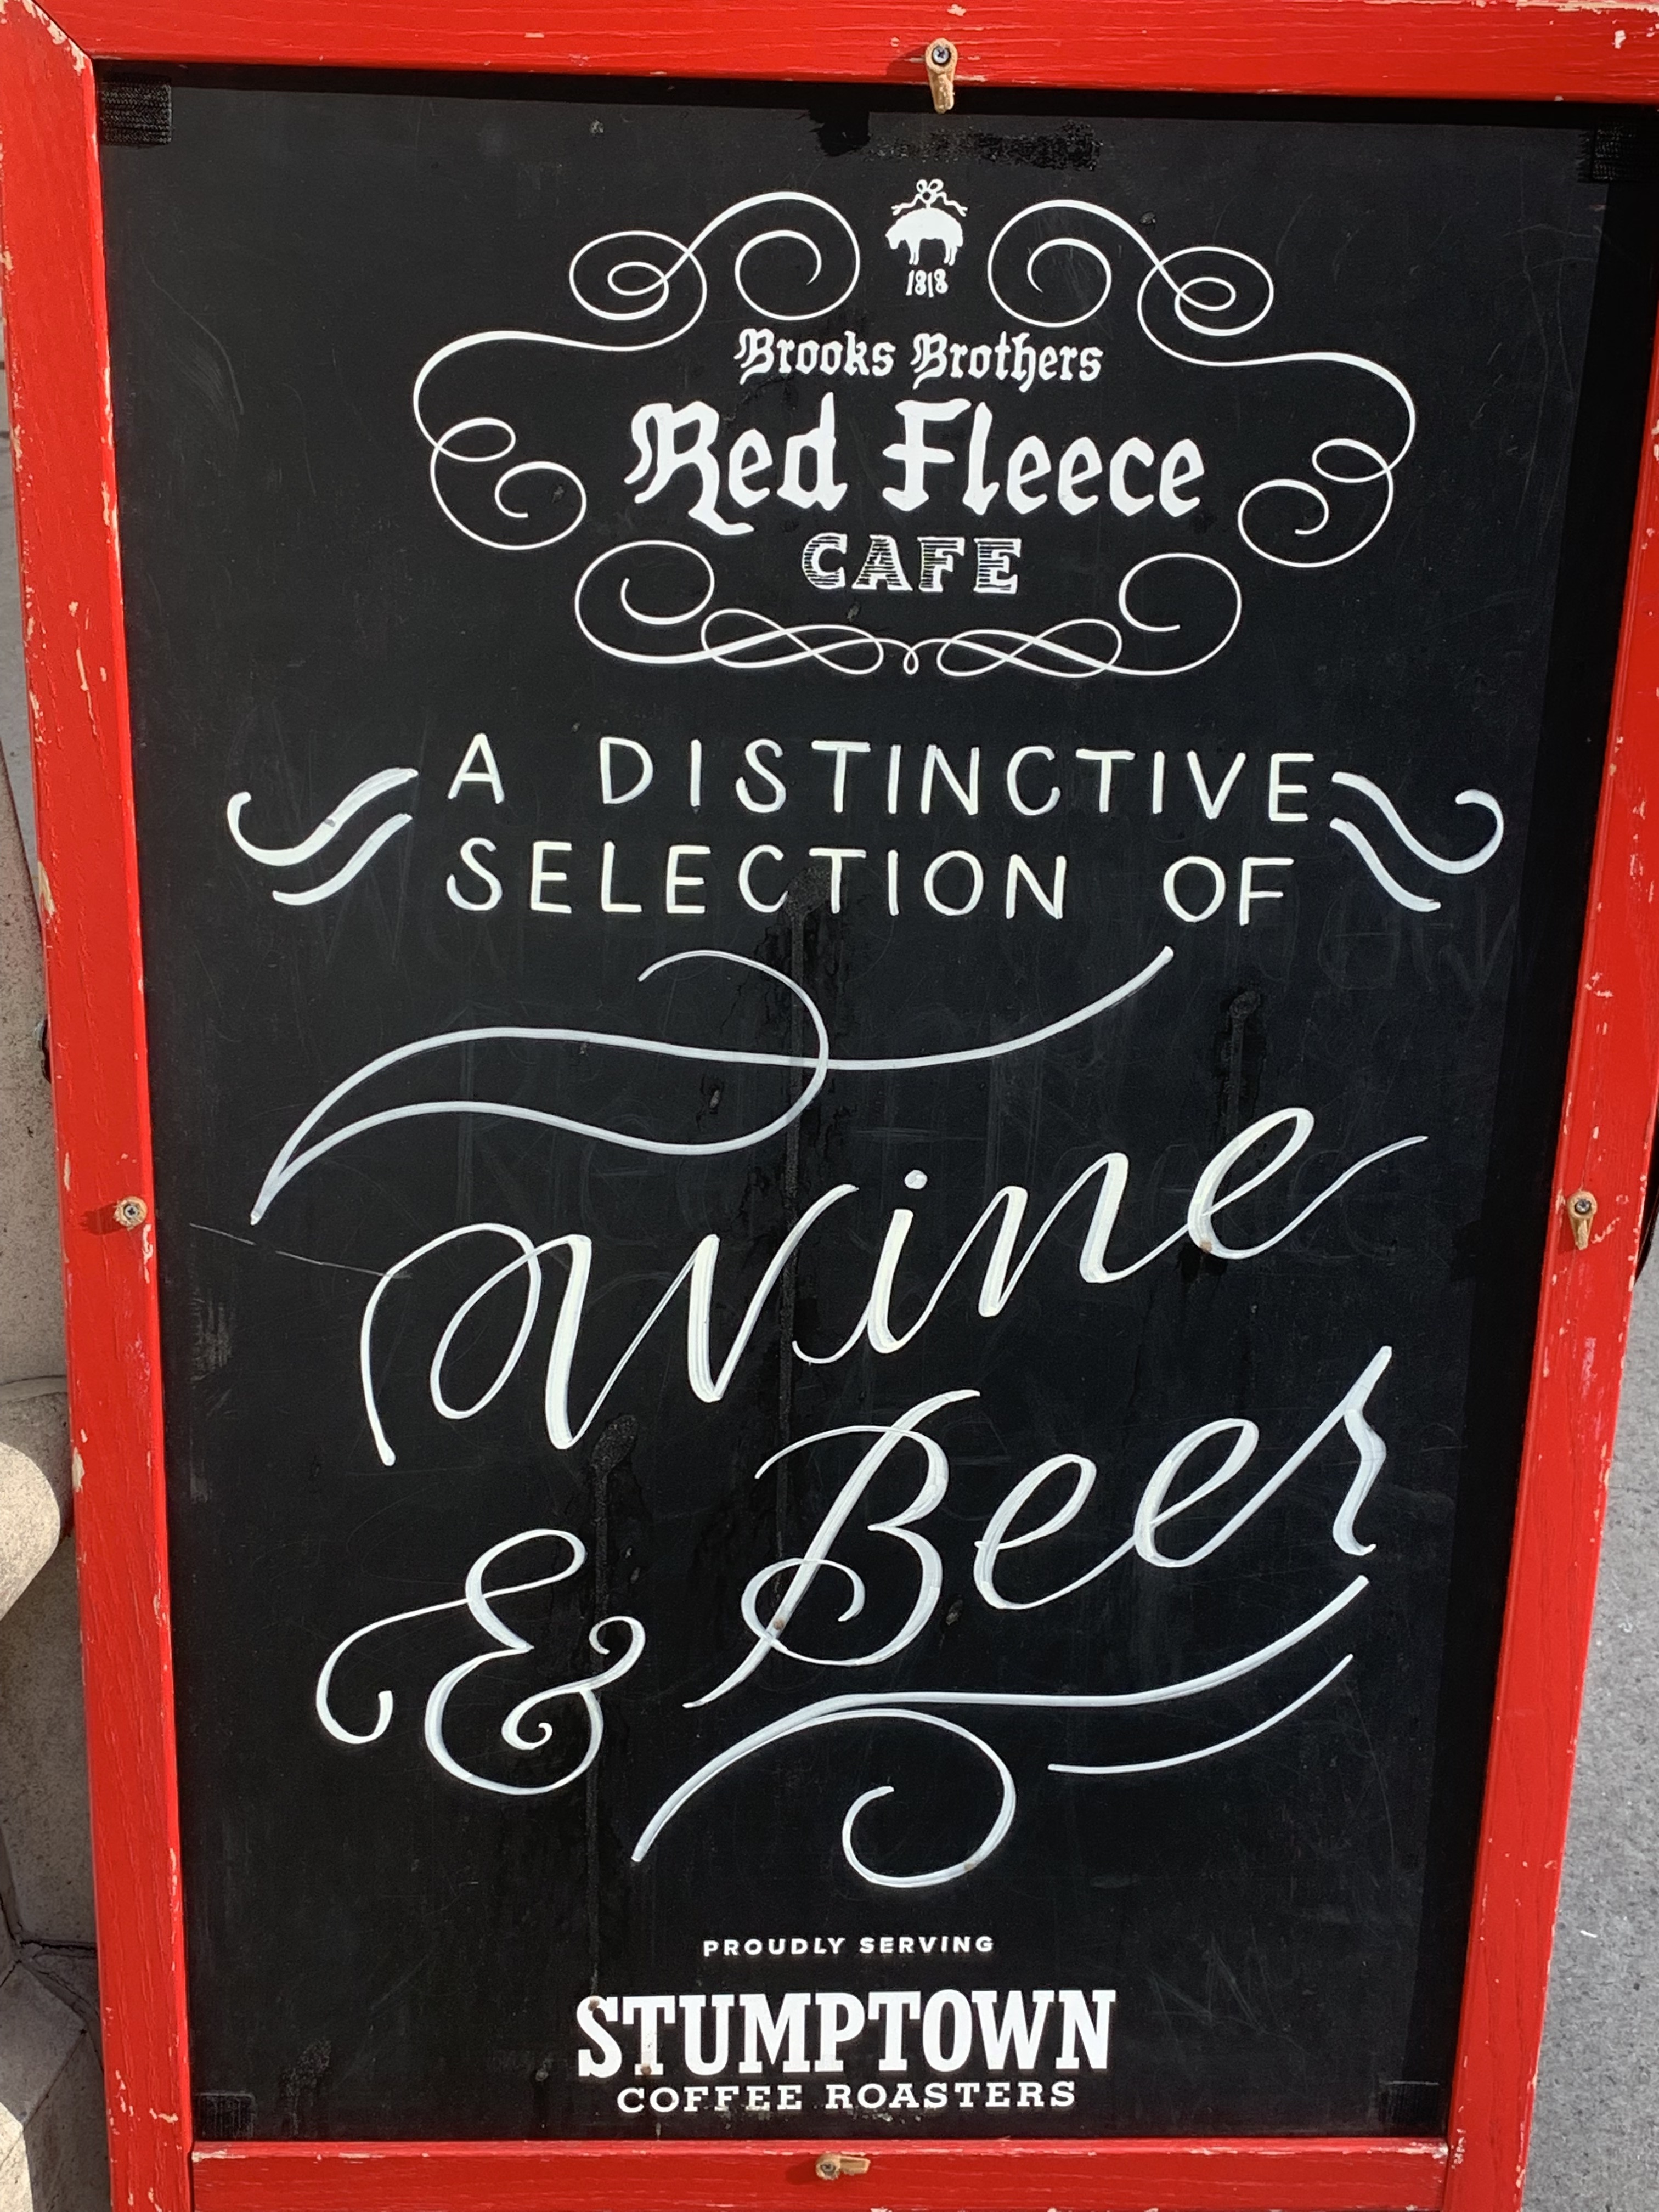 1818
Brooks Brothers
Red Fleece
CAFE
A DISTINCTIVE
SELECTION OF
Wine
& Beer
PROUDLY SERVING
STUMPTOWN
COFFEE ROASTERS